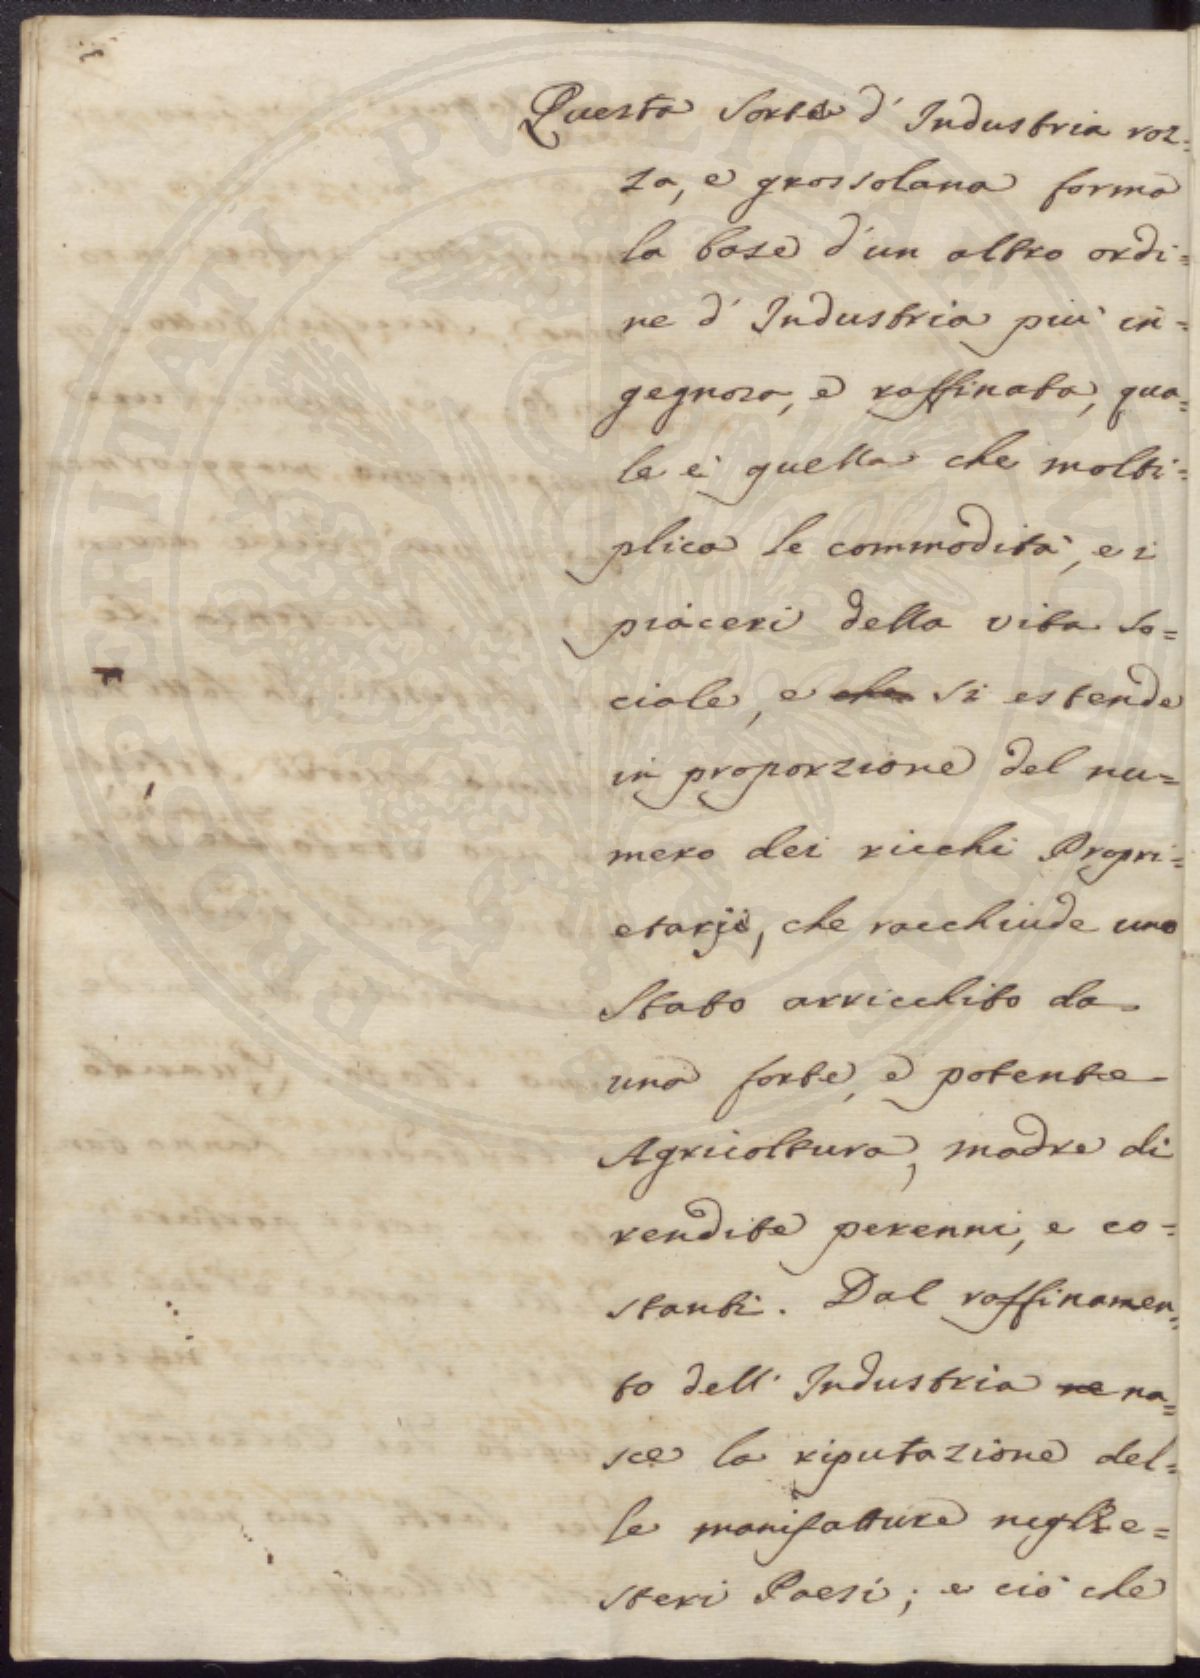 Questa sorte d'Industria roz=
za, e grossolana forma
la base d'un altro ordi=
ne d'Industria più in=
gegnosa, e raffinata, qua=
le è quella che molti=
plica le commodità, e i
piaceri della vita so=
ciale, e che si estende
in proporzione del nu=
mero dei ricchi Propri=
etarj, che racchiude uno
Stato arricchito da
una forte, e potente
Agricoltura, madre di
rendite perenni, e co=
stanti. Dal raffinamen=
to dell'Industria ne na=
sce la riputazione del=
le manifatture negli e=
steri Paesi; e ciò che
PROSPERITATI PUBLICAE